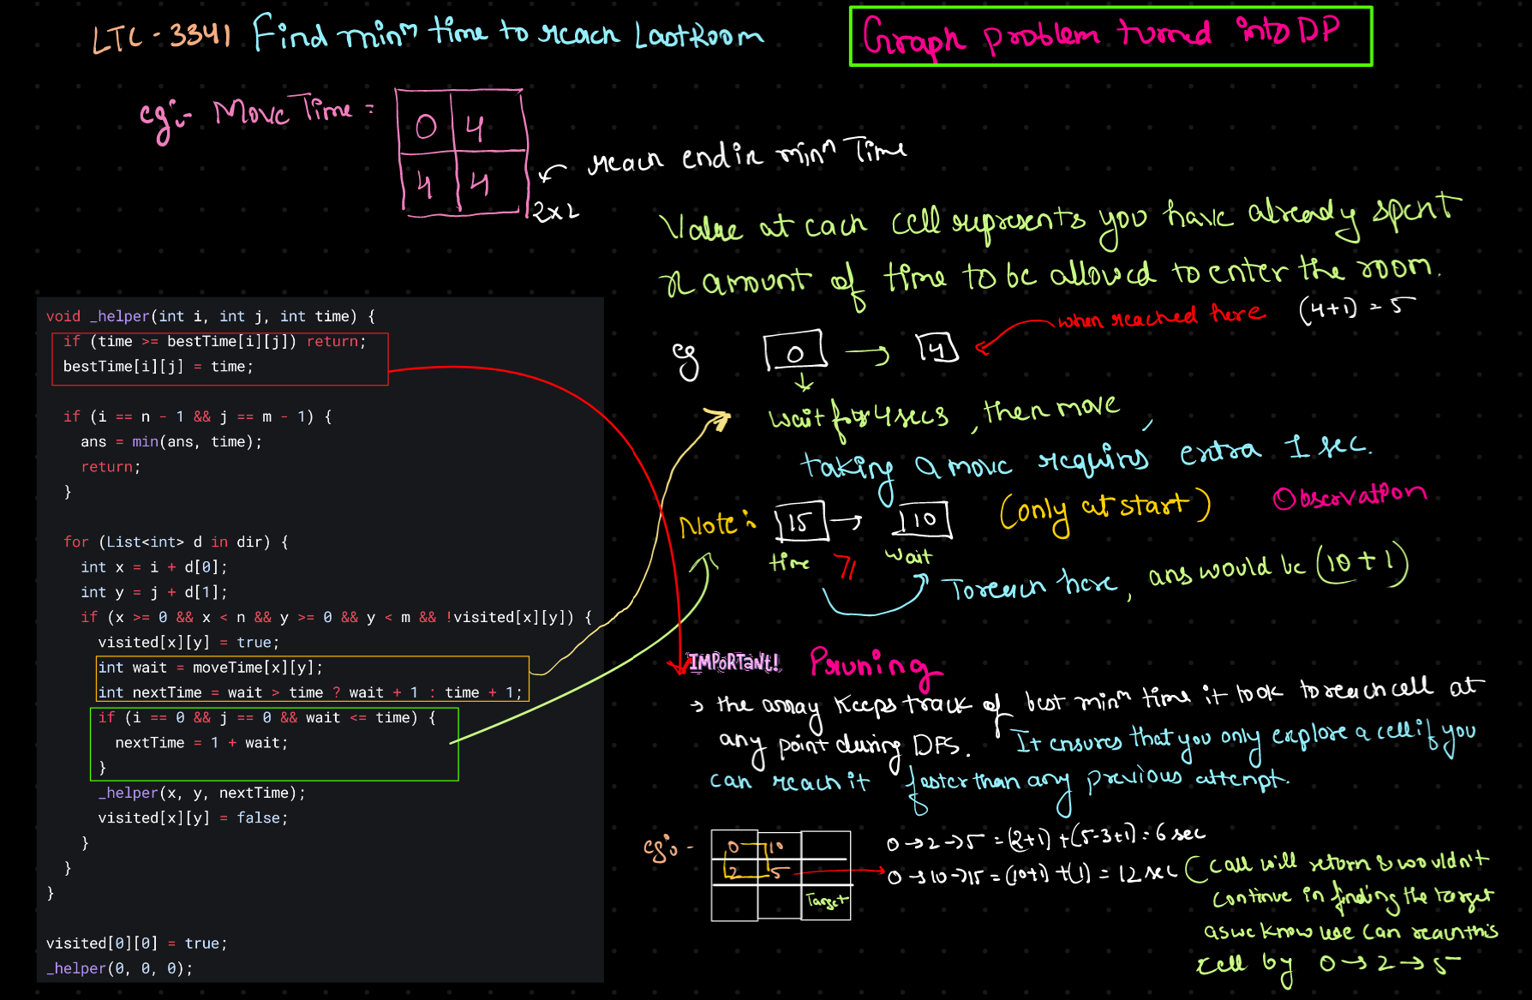 LTC - 3341 Find minᵐ time to reach LastRoom
Graph problem turned into DP
eg:- Move Time =
0 4
4 4
2x2
reach end in minᵐ Time
Value at each cell represents you have already spent
x amount of time to be allowed to enter the room.
when reached here (4+1) = 5
eg 0 → 4
wait for 4 secs, then move
taking a move requires extra 1 sec.
Note: 15 → 10 (only at start) Observation
time >= wait
To reach here, ans would be (10 + 1)
void _helper(int i, int j, int time) {
if (time >= bestTime[i][j]) return;
bestTime[i][j] = time;
if (i == n - 1 && j == m - 1) {
ans = min(ans, time);
return;
}
for (List<int> d in dir) {
int x = i + d[0];
int y = j + d[1];
if (x >= 0 && x < n && y >= 0 && y < m && !visited[x][y]) {
visited[x][y] = true;
int wait = moveTime[x][y];
int nextTime = wait > time ? wait + 1 : time + 1;
if (i == 0 && j == 0 && wait <= time) {
nextTime = 1 + wait;
}
_helper(x, y, nextTime);
visited[x][y] = false;
}
}
}
visited[0][0] = true;
_helper(0, 0, 0);
IMPORTANT! Pruning
→ the array Keeps track of best minᵐ time it took to reach cell at
any point during DFS. It ensures that you only explore a cell if you
can reach it faster than any previous attempt.
eg:-
0 10
2 5
Target
0→2→5 = (2+1) + (5-3+1) = 6 sec
0→10→15 = (10+1) + (1) = 12 sec
(call will return & wouldn't
continue in finding the target
as we know we can reach this
cell by 0→2→5